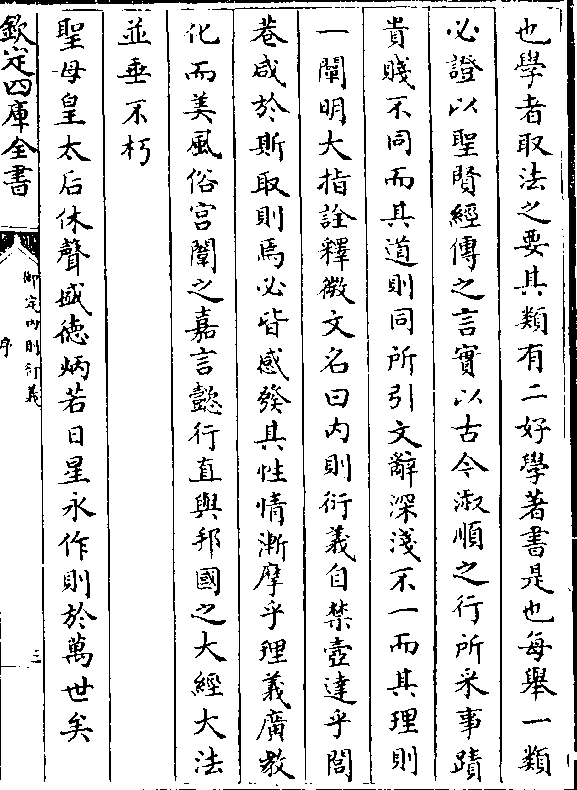 也學者取法之要其類有二好學著書是也每舉一類
必證以聖賢經傳之言實以古今淑順之行所采事蹟
貴賤不同而其道則同所引文辭深淺不一而其理則
一闡明大指詮釋微文名曰內則衍義自禁壼達乎閭
巷咸於斯取則焉必皆感發其性情漸摩乎理義廣教
化而美風俗宫闈之嘉言懿行直與邦國之大經大法
並垂不朽
聖母皇太后休聲盛徳炳若日星永作則於萬世矣
欽定四庫全書
御定內則衍義
序
三